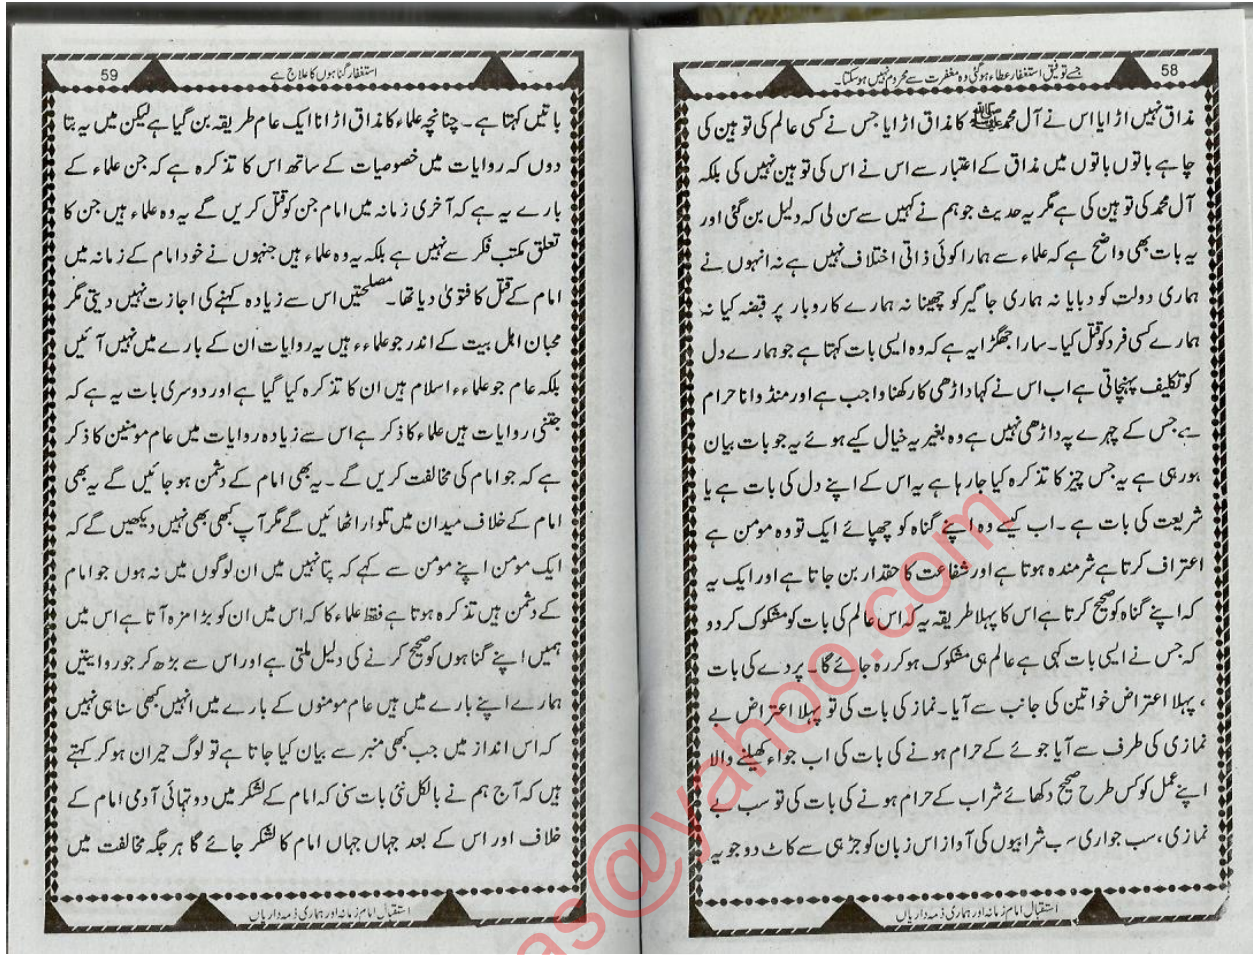 58
جسے توفیق استغفار عطاء ہوگئی وہ مغفرت سے محروم نہیں ہو سکتا۔
مذاق نہیں اڑایا اس نے آل محمدﷺ کا مذاق اڑایا جس نے کسی عالم کی توہین کی
چاہے باتوں باتوں میں مذاق کے اعتبار سے اس نے اس کی توہین نہیں کی بلکہ
آل محمد کی توہین کی ہے مگر یہ حدیث جو ہم نے کہیں سے سن لی کہ دلیل بن گئی اور
یہ بات بھی واضح ہے کہ علماء سے ہمارا کوئی ذاتی اختلاف نہیں ہے نہ انہوں نے
ہماری دولت کو دبایا نہ ہماری جاگیر کو چھینا نہ ہمارے کاروبار پر قبضہ کیا نہ
ہمارے کسی فرد کو قتل کیا۔ سارا جھگڑا یہ ہے کہ وہ ایسی بات کہتا ہے جو ہمارے دل
کو تکلیف پہنچاتی ہے اب اس نے کہا داڑھی کا رکھنا واجب ہے اور منڈوانا حرام
ہے جس کے چہرے پہ داڑھی نہیں ہے وہ بغیر یہ خیال کیے ہوئے یہ جو بات بیان
ہو رہی ہے یہ جس چیز کا تذکرہ کیا جا رہا ہے یہ اس کے اپنے دل کی بات ہے یا
شریعت کی بات ہے۔ اب کیسے وہ اپنے گناہ کو چھپائے ایک تو وہ مومن ہے
اعتراف کرتا ہے شرمندہ ہوتا ہے اور شفاعت کا حقدار بن جاتا ہے اور ایک یہ
کہ اپنے گناہ کو صحیح کرتا ہے اس کا پہلا طریقہ یہ کہ اس عالم کی بات کو مشکوک کردو
کہ جس نے ایسی بات کہی ہے عالم ہی مشکوک ہو کر رہ جائے گا۔ پردے کی بات
، پہلا اعتراض خواتین کی جانب سے آیا۔ نماز کی بات کی تو پہلا اعتراض بے
نمازی کی طرف سے آیا جوئے کے حرام ہونے کی بات کی اب جواء کھیلنے والا
اپنے عمل کو کس طرح صحیح دکھائے شراب کے حرام ہونے کی بات کی تو سب بے
نمازی، سب جواری سب شرابیوں کی آواز اس زبان کو جڑ ہی سے کاٹ دو جو یہ
استقبال امام زمانہ اور ہماری ذمہ داریاں
59
استغفار گناہوں کا علاج ہے
باتیں کہتا ہے۔ چنانچہ علماء کا مذاق اڑانا ایک عام طریقہ بن گیا ہے لیکن میں یہ بتا
دوں کہ روایات میں خصوصیات کے ساتھ اس کا تذکرہ ہے کہ جن علماء کے
بارے یہ ہے کہ آخری زمانہ میں امام جن کو قتل کریں گے یہ وہ علماء ہیں جن کا
تعلق مکتب فکر سے نہیں ہے بلکہ یہ وہ علماء ہیں جنہوں نے خود امام کے زمانہ میں
امام کے قتل کا فتویٰ دیا تھا۔ مصلحتیں اس سے زیادہ کہنے کی اجازت نہیں دیتی مگر
محبان اہل بیت کے اندر جو علماءء ہیں یہ روایات ان کے بارے میں نہیں آئیں
بلکہ عام جو علماءء اسلام ہیں ان کا تذکرہ کیا گیا ہے اور دوسری بات یہ ہے کہ
جتنی روایات ہیں علماء کا ذکر ہے اس سے زیادہ روایات میں عام مومنین کا ذکر
ہے کہ جو امام کی مخالفت کریں گے۔ یہ بھی امام کے دشمن ہو جائیں گے یہ بھی
امام کے خلاف میدان میں تلوار اٹھائیں گے مگر آپ کبھی بھی نہیں دیکھیں گے کہ
ایک مومن اپنے مومن سے کہے کہ پتا نہیں میں ان لوگوں میں نہ ہوں جو امام
کے دشمن ہیں تذکرہ ہوتا ہے فقط علماء کا کہ اس میں ان کو بڑا مزہ آتا ہے اس میں
ہمیں اپنے گناہوں کو صحیح کرنے کی دلیل ملتی ہے اور اس سے بڑھ کر جو روایتیں
ہمارے اپنے بارے میں ہیں عام مومنوں کے بارے میں انہیں کبھی سنا ہی نہیں
کہ اس انداز میں جب کبھی منبر سے بیان کیا جاتا ہے تو لوگ حیران ہو کر کہتے
ہیں کہ آج ہم نے بالکل نئی بات سنی کہ امام کے لشکر میں دو تہائی آدمی امام کے
خلاف اور اس کے بعد جہاں جہاں امام کا لشکر جائے گا ہر جگہ مخالفت میں
استقبال امام زمانہ اور ہماری ذمہ داریاں
as@yahoo.com